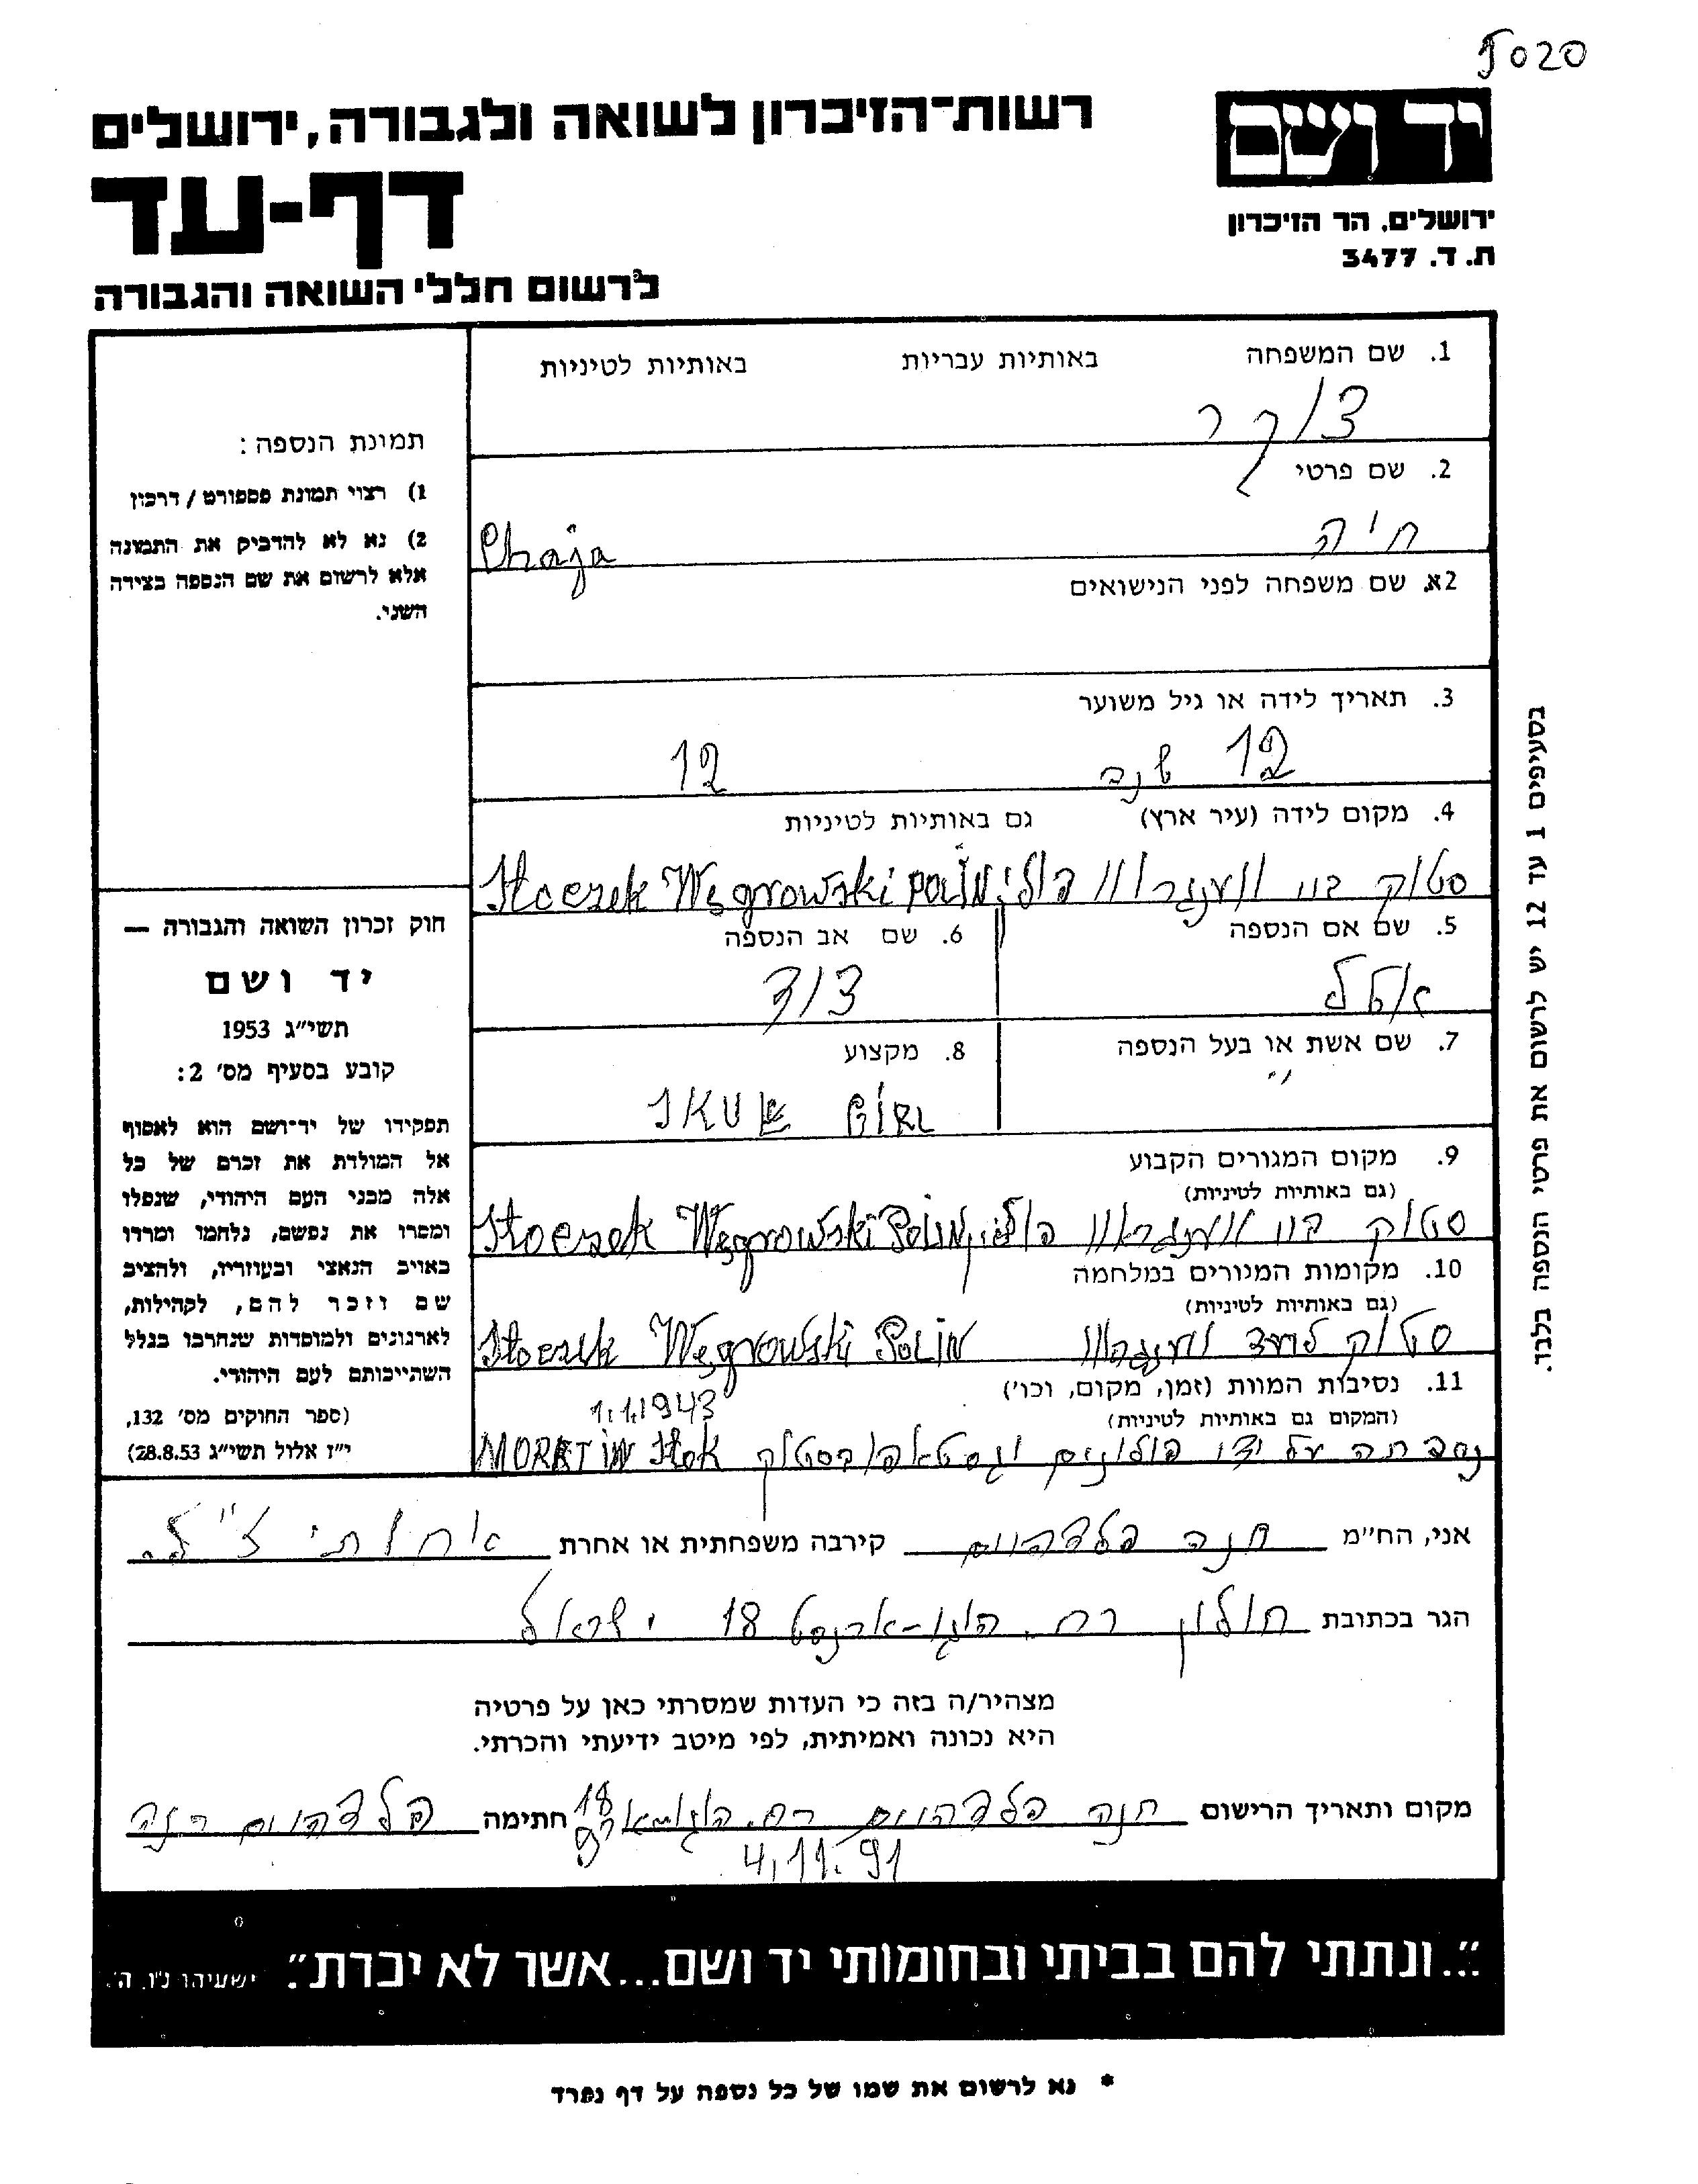 5020
יד ושם
ירושלים, הר הזיכרון
ת.ד. 3477
רשות-הזיכרון לשואה ולגבורה, ירושלים
דף-עד
לרשום חללי השואה והגבורה
1. שם המשפחה באותיות עבריות באותיות לטיניות
צוקר
2. שם פרטי
חיה Chaja
2א. שם משפחה לפני הנישואים
3. תאריך לידה או גיל משוער
12 12
4. מקום לידה (עיר ארץ) גם באותיות לטיניות
סטוק Stoczek Węgrowski
5. שם אם הנספה 6. שם אב הנספה
7. שם אשת או בעל הנספה 8. מקצוע
GIRL
9. מקום המגורים הקבוע
(גם באותיות לטיניות)
סטוק Stoczek Węgrowski
10. מקומות המגורים במלחמה
(גם באותיות לטיניות)
סטוק ליד Stoczek Węgrowski Polin
11. נסיבות המוות (זמן, מקום, וכו')
(המקום גם באותיות לטיניות) 1.1.1943
על ידי פולונים Stok
תמונת הנספה:
1) רצוי תמונת פספורט / דרכון
2) נא לא להדביק את התמונה
אלא לרשום את שם הנספה בצידה
השני.
חוק זכרון השואה והגבורה —
יד ושם
תשי"ג 1953
קובע בסעיף מס' 2:
תפקידו של יד-ושם הוא לאסוף
אל המולדת את זכרם של כל
אלה מבני העם היהודי, שנפלו
ומסרו את נפשם, נלחמו ומרדו
באויב הנאצי ובעוזריו, ולהציב
שם וזכר להם, לקהילות,
לארגונים ולמוסדות שנחרבו בגלל
השתייכותם לעם היהודי.
(ספר החוקים מס' 132,
י"ז אלול תשי"ג 28.8.53)
בסעיפים 1 עד 12 יש לרשום את פרטי הנספה בלבד.
אני, הח"מ חנה פלדהיים קירבה משפחתית או אחרת אחותי ז"ל.
הגר בכתובת חולון רח. 18 ישראל
מצהיר/ה בזה כי העדות שמסרתי כאן על פרטיה
היא נכונה ואמיתית, לפי מיטב ידיעתי והכרתי.
מקום ותאריך הרישום חנה פלדהיים רח. 18 חתימה פלדהיים חנה
4.11.91
"...ונתתי להם בביתי ובחומותי יד ושם...אשר לא יכרת". ישעיהו נ"ו, ה'.
* נא לרשום את שמו של כל נספה על דף נפרד